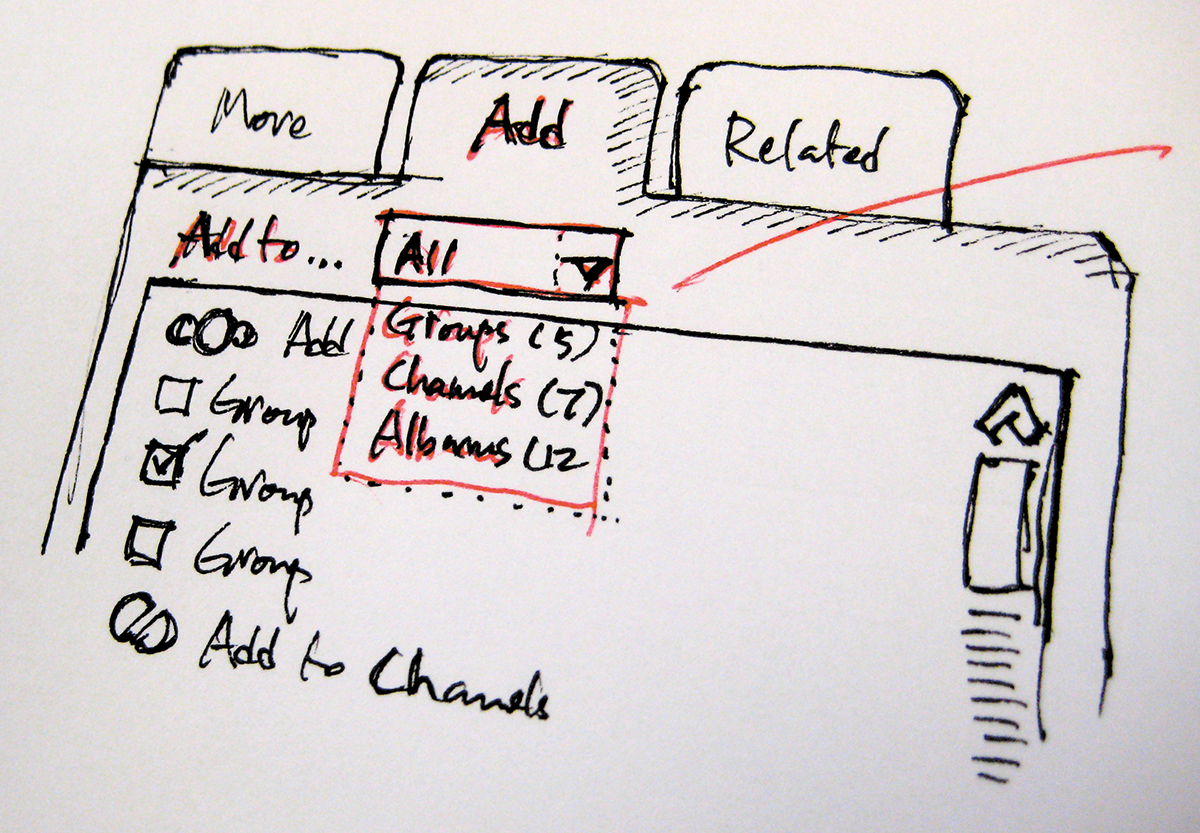 Move
Add
Related
Add to...
All
Groups (5)
Channels (7)
Albums (12
Add
Group
Group
Group
Add to Channels